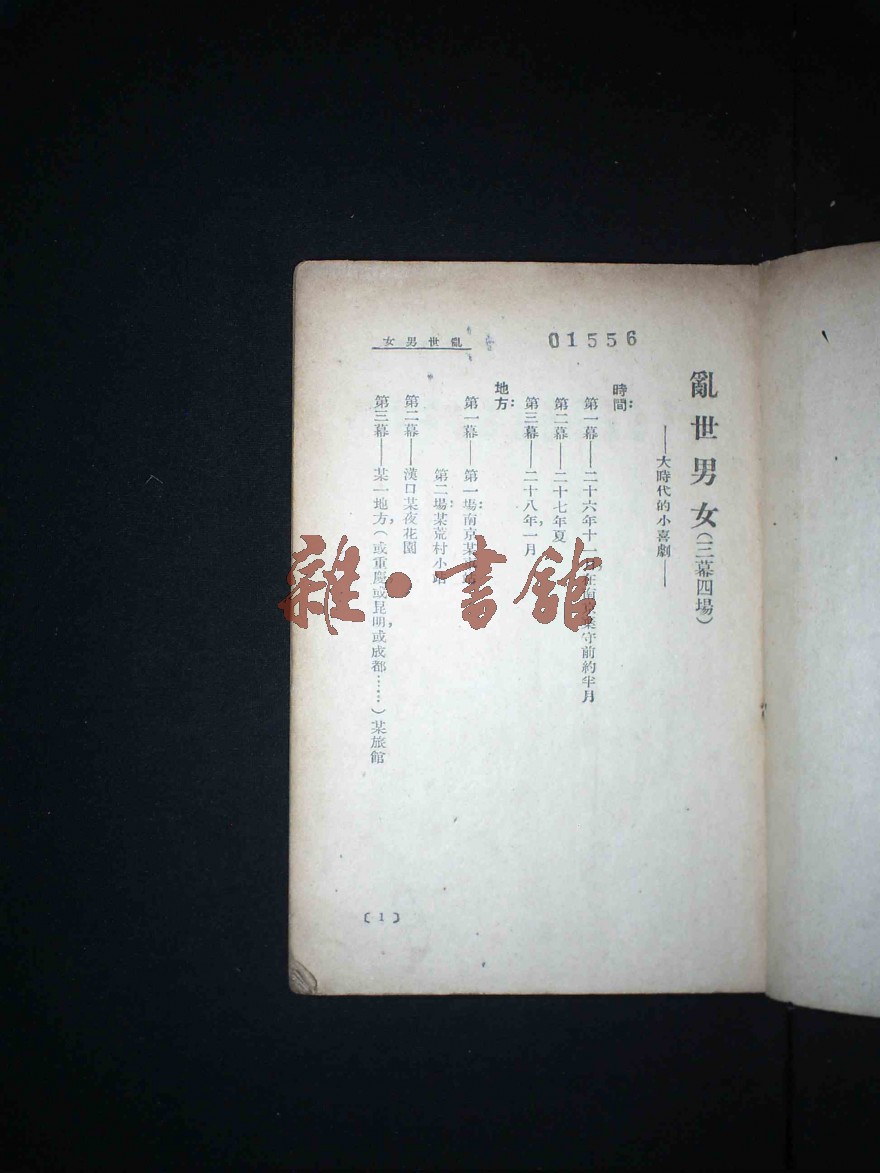 亂世男女(三幕四場)
——大時代的小喜劇——
時間:
第一幕——二十六年十一月在南京棄守前約半月
第二幕——二十七年夏
第三幕——二十八年,一月
地方:
第一幕——第一場:南京某
第二場:某荒村小站
第二幕——漢口某夜花園
第三幕——某一地方,(或重慶或昆明,或成都……)某旅館
亂世男女
01556
〔1〕
雜·書館